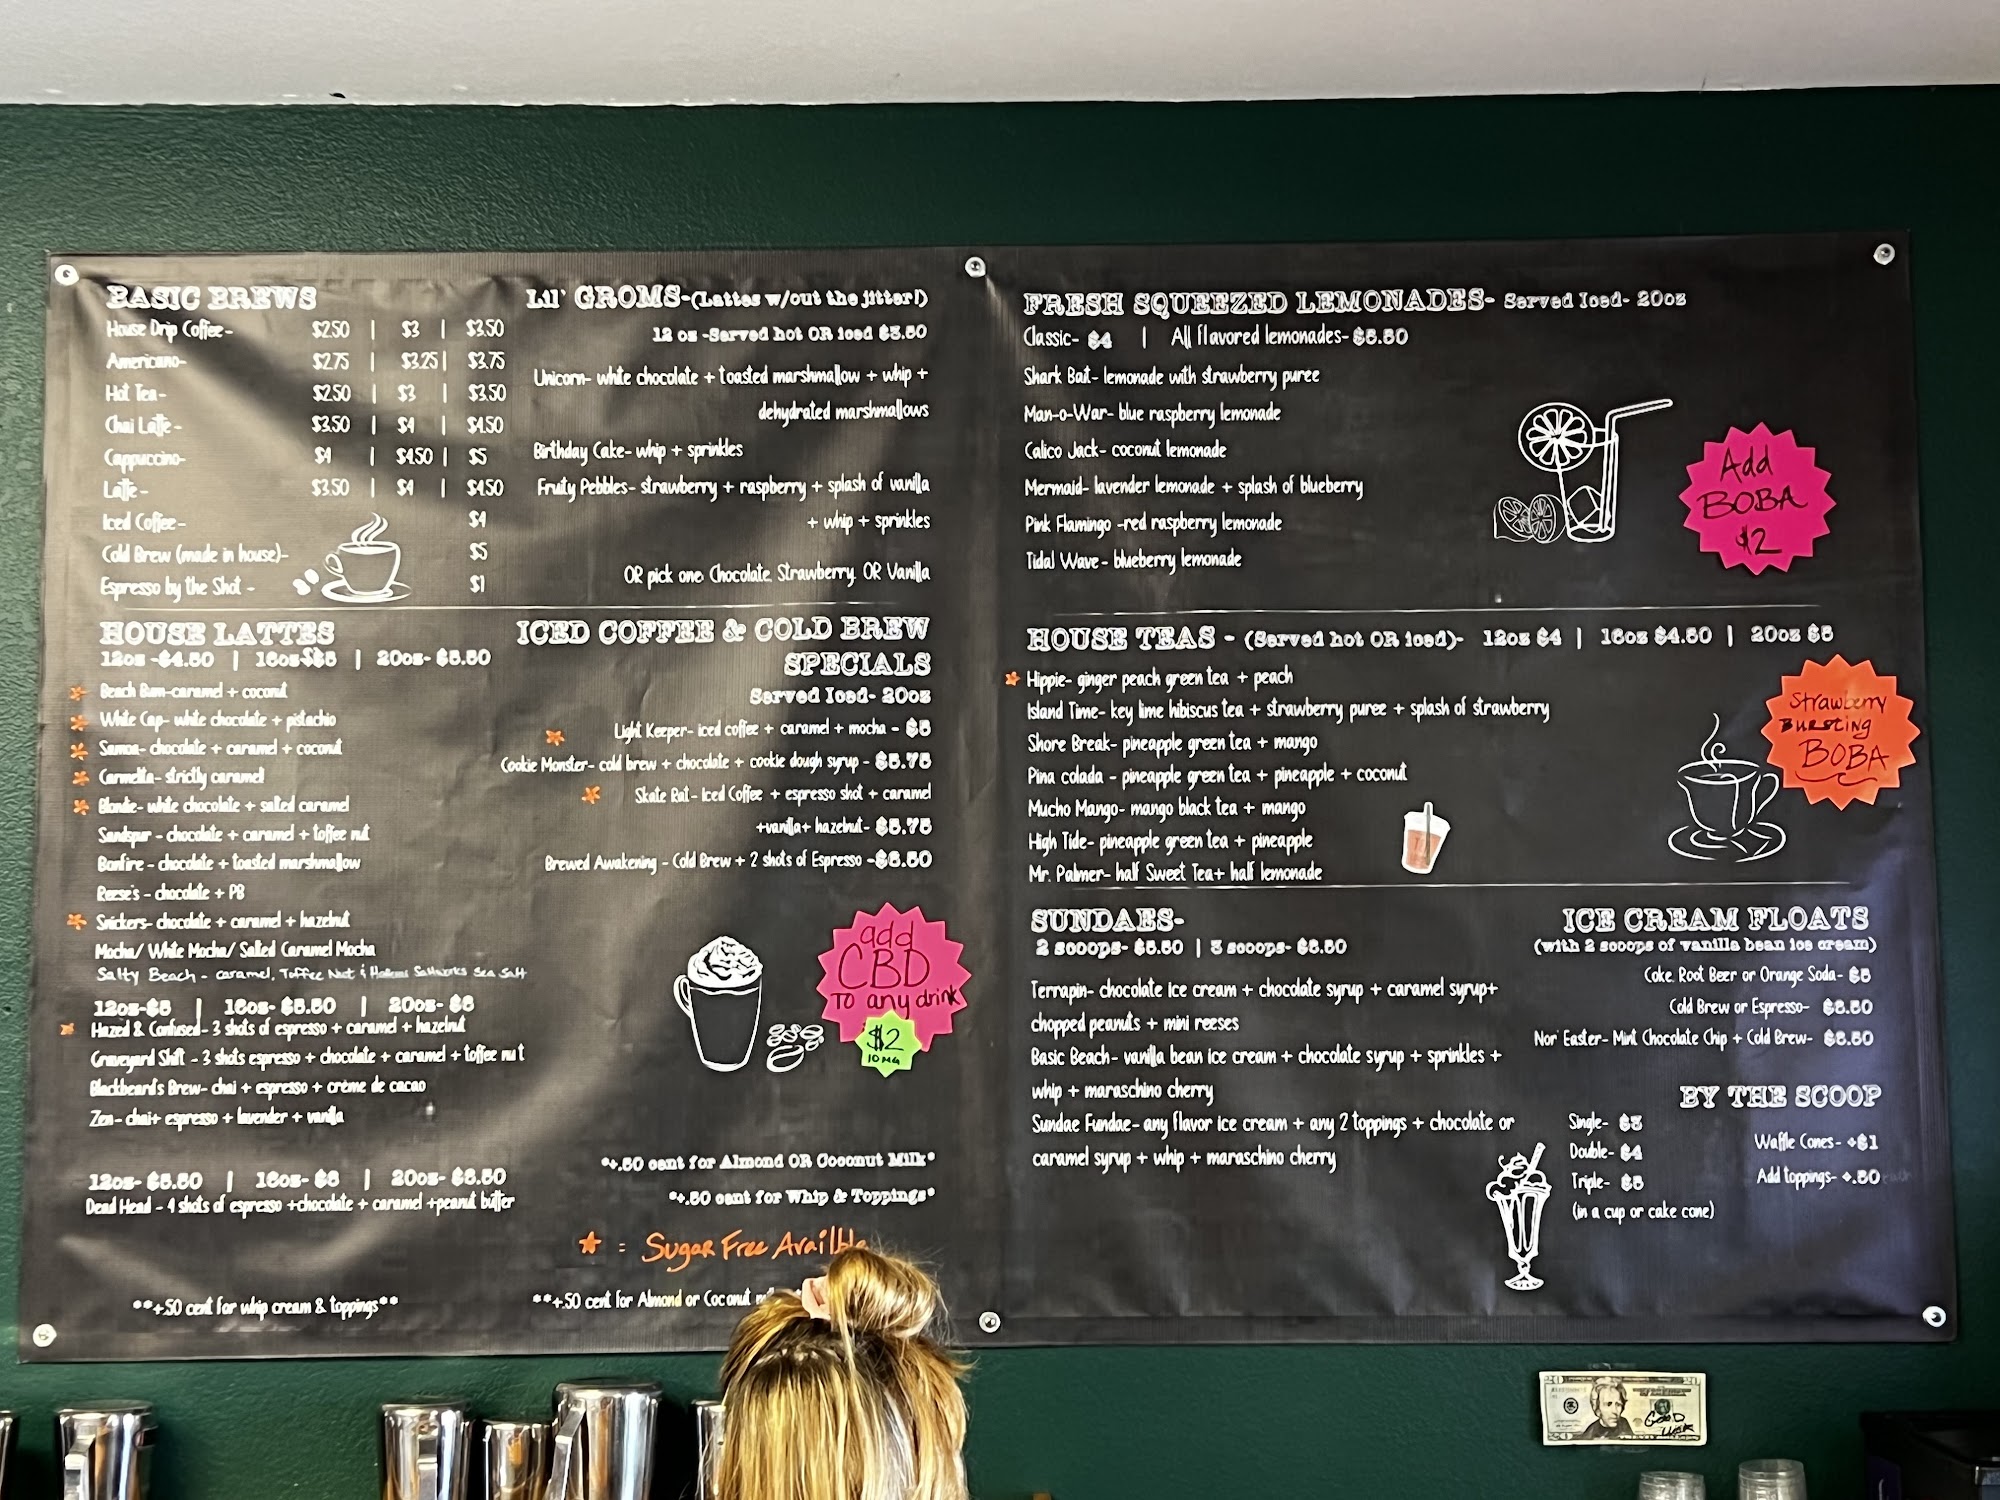 BASIC BREWS
House Drip Coffee- $2.50 | $3 | $3.50
Americano- $2.75 | $3.25 | $3.75
Hot Tea- $2.50 | $3 | $3.50
Chai Latte- $3.50 | $4 | $4.50
Cappuccino- $4 | $4.50 | $5
Latte- $3.50 | $4 | $4.50
Iced Coffee- $4
Cold Brew (made in house)- $5
Espresso by the Shot - $1
Lil' GROMS-(Lattes w/out the jitter!)
12 oz -Served hot OR iced $3.50
Unicorn- white chocolate + toasted marshmallow + whip +
dehydrated marshmallows
Birthday Cake- whip + sprinkles
Fruity Pebbles- strawberry + raspberry + splash of vanilla
+ whip + sprinkles
OR pick one: Chocolate, Strawberry, OR Vanilla
HOUSE LATTES
12oz -$4.50 | 16oz-$5 | 20oz- $5.50
Beach Bum-caramel + coconut
White Cap- white chocolate + pistachio
Samoa- chocolate + caramel + coconut
Carmelta- strictly caramel!
Blondie- white chocolate + salted caramel
Sandspur - chocolate + caramel + toffee nut
Bonfire - chocolate + toasted marshmallow
Reese's - chocolate + PB
Snickers- chocolate + caramel + hazelnut
Mocha/ White Mocha/ Salted Caramel Mocha
Salty Beach - caramel, Toffee Nut & Saltworks Sea Salt
12oz-$5 | 16oz- $5.50 | 20oz- $6
Hazed & Confused- 3 shots of espresso + caramel + hazelnut
Graveyard Shift - 3 shots espresso + chocolate + caramel + toffee nut
Blackbeard's Brew- chai + espresso + crème de cacao
Zen- chai+ espresso + lavender + vanilla
12oz- $5.50 | 16oz- $6 | 20oz- $6.50
Dead Head - 4 shots of espresso +chocolate + caramel +peanut butter
**+.50 cent for whip cream & toppings**
ICED COFFEE & COLD BREW
SPECIALS
Served Iced- 20oz
Light Keeper- iced coffee + caramel + mocha - $5
Cookie Monster- cold brew + chocolate + cookie dough syrup - $5.75
Skate Rat- Iced Coffee + espresso shot + caramel
+vanilla+ hazelnut- $5.75
Brewed Awakening - Cold Brew + 2 shots of Espresso -$6.50
add
CBD
TO any drink
$2
10 MG
*+.50 cent for Almond OR Coconut Milk*
*+.50 cent for Whip & Toppings*
= Sugar Free Availble
**+.50 cent for Almond or Coconut
FRESH SQUEEZED LEMONADES- Served Iced- 20oz
Classic- $4 | All flavored lemonades- $5.50
Shark Bait- lemonade with strawberry puree
Man-o-War- blue raspberry lemonade
Calico Jack- coconut lemonade
Mermaid- lavender lemonade + splash of blueberry
Pink Flamingo -red raspberry lemonade
Tidal Wave- blueberry lemonade
Add
BOBA
$2
HOUSE TEAS - (Served hot OR iced)- 12oz $4 | 16oz $4.50 | 20oz $5
Hippie- ginger peach green tea + peach
Island Time- key lime hibiscus tea + strawberry puree + splash of strawberry
Shore Break- pineapple green tea + mango
Pina colada - pineapple green tea + pineapple + coconut
Mucho Mango- mango black tea + mango
High Tide- pineapple green tea + pineapple
Mr. Palmer- half Sweet Tea+ half lemonade
Strawberry
Bursting
BOBA
SUNDAES-
2 scoops- $5.50 | 3 scoops- $6.50
Terrapin- chocolate ice cream + chocolate syrup + caramel syrup+
chopped peanuts + mini reeses
Basic Beach- vanilla bean ice cream + chocolate syrup + sprinkles +
whip + maraschino cherry
Sundae Fundae- any flavor ice cream + any 2 toppings + chocolate or
caramel syrup + whip + maraschino cherry
ICE CREAM FLOATS
(with 2 scoops of vanilla bean ice cream)
Coke, Root Beer or Orange Soda- $5
Cold Brew or Espresso- $6.50
Nor' Easter- Mint Chocolate Chip + Cold Brew- $6.50
BY THE SCOOP
Single- $3
Double- $4
Triple- $5
(in a cup or cake cone)
Waffle Cones- +$1
Add toppings- +.50
20
GOOD
LUCK